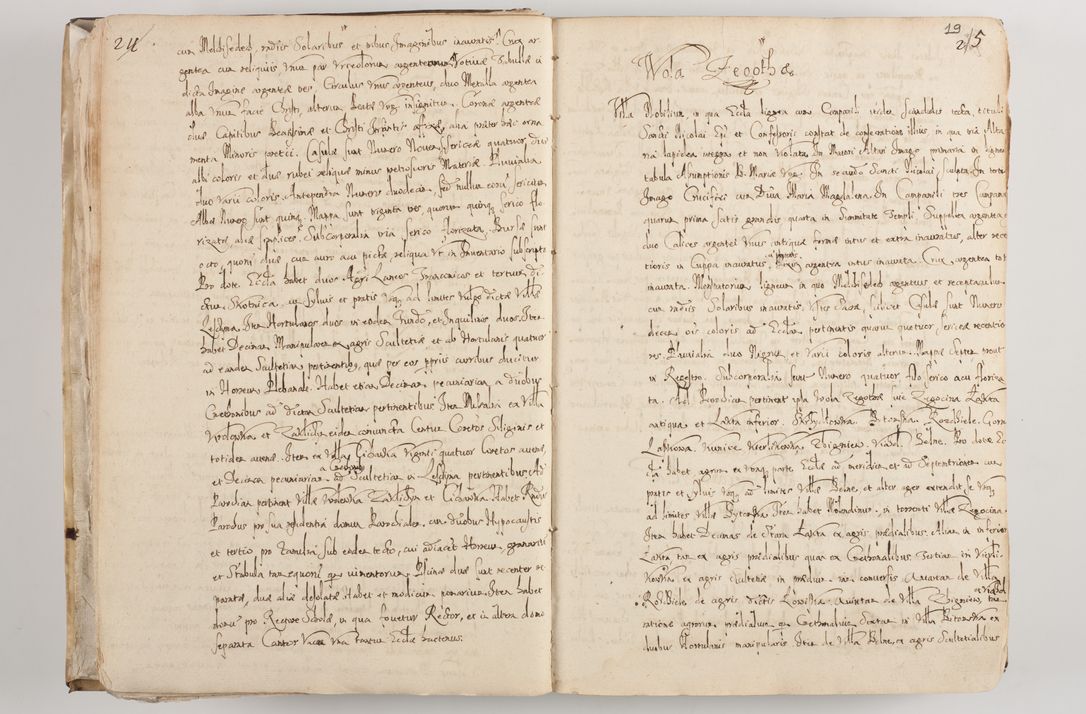 24
cum Melchisedech, radiis Solaribus et nibus Imaginibus inauratis. Crux ar
gentea cum reliquiis Unum par Urceolorum argenteorum Votivae Tabulae a
dicta Imagine argenteae tres. Circulus Unus argenteus, duo Metalla argentea
alba Unum facie Christi, alterum Beatae Virg. insignitum. Coronae argenteae
duae Capitibus Beatissimae et Christi Infantis affixae, alia praeter haec orna
menta Minoris pretii. Casulae sunt Numero Novem Sericeae quatuor, duae
albi coloris et duae rubei reliquae minus pretiosioris Materiae Pluvialia
duo varii coloris. Antependia Numero duodecim, sed nullum eorum Sericeum
Albae Numero sunt quinque. Mappae sunt triginta tres, quarum quinque serico flo
rizatae, aliae simplices. Subcorporalia tria serico florizata. Bursae sunt
octo, quarum duae cum auro acu pictae, reliqua ut in Inventario subscripta
Pro dote Eccla habet duos Agri Laneos Franconicos et tertium di
ctum Skotnica, cum sylvis et pratis usque ad limites Vulgo dictae Villae
Leschna. Item Hortulanos duos in eodem fundo, et Inquilinos duos. Item
habet Decimam Manipularem ex agris Scultetiae et ab Hortulanis quatuor
ad eandem Scultetiam pertinentibus, quae per eos propriis curribus ducitur
in Horreum Plebanale. Habet etiam Decimam pecuniariam a duobus
Cmethonibus ad dictam Scultetiam pertinentibus. Item Missalia ex Villa
Wrolowka et Zaklidzin eidem conjuncta Centum Coretos Siliginis et
totidem avenae. Item ex Villa Cichawka Viginti quatuor Coretos avenae,
et Decimam pecuniariam a Cmethonibus ad Scultetiam in Leschna pertinentibus. Ad
Parochiam pertinent Villae Wrolowka Zaklidzin et Cichawka. Habet Rndus
Parochus pro sua residentia domum Parochialem, cum duobus Hypocaustis
et tertio pro familia sub eodem tecto, cui adiacet Horreum, granarium
et Stabula tam equorum quam jumentorum. Piscinae duae sunt recenter re
paratae, duae aliae desolatae. Habet et modicum pomarium. Item habet
domum pro Rectore Scholae, in qua fovetur Rector, et in altera domo
separata Cantor Vaccae una tantum Ecclae
19
25
Wola Zegothae
Villa Nobilium, in qua Eccla lignea cum Campanili undique scandulis tecta, tituli
Sancti Nicolai Epi et Confessoris constat de consecratione illius in qua tria Alta
ria lapidea integra et non violata. In Maiori Altari Imago primaria in lignea
tabula Assumptionis B. Mariae Virg. In secundo Sancti Nicolai, sculpta, In tertio
Imago Crucifixi cum Diva Maria Magdalena. In Campanili tres Campanae
quarum prima satis grandis, quarta in Summitate Templi. Suppellex argentea
duo Calices argentei Unus antiquae formae intus et extra inauratus, alter recen
tioris in Cuppa inauratus, cum patenis argentea intus inaurata. Crux argentea tota
inaurata. Monstratorium ligneum in quo Melchisedech argenteus et receptaculum
cum radiis Solaribus inauratis. Casulae sunt Numero
decem ois coloris ad Ecclam pertinentis quarum quatuor, sericeae recentio
res Pluvialia duo Nigrum et Varii coloris alterum. Mappae sexies prout
in Regestro. Subcorporalia sunt Numero quatuor flo serico acu floriza
ta. Ad Parochiam pertinent ipsa Wola Zegothae sive Zegocina Łąkta
antiqua et Łąkta inferior. Bytomska Rozdziele. Gorna
Laktowa, Kunice Kierlikowka Zbigniew Viarda Belna. Pro dote Ec
cla habet agrum ex una parte Ecclae ad meridiem, et ad Septentrionem cum
pratis et sylvis usque ad limites Villae Belna, et alter ager extendit se usque
ad limites Villae Bytomska. Item habet Molendinum, in torrente Villae Zegocina
Item habet Decimas de Stara Łąkta ex agris praedialibus. Aliam in inferiori
Łąkta tam ex agris praedialibus quam ex Cmethonalibus. Tertiam in Kierli
kowka ex agris sculteticis in praedium conversis. Quartam de Villa
Rozdziele de agris dictis Lowisko. Quintam de Villa Zbigniew, et Viarda tam
ratione agrorum praedialium quam Cmethonalium. Sextam in Villa Bitomska ex
duobus Hortulanis manipularis. Item de Villa Belna, ex agris Scultetialibus